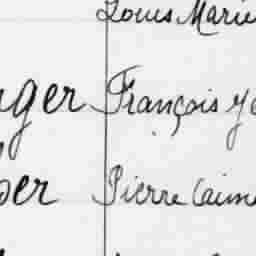 Louis Marie
ger François
er Pierre Caime